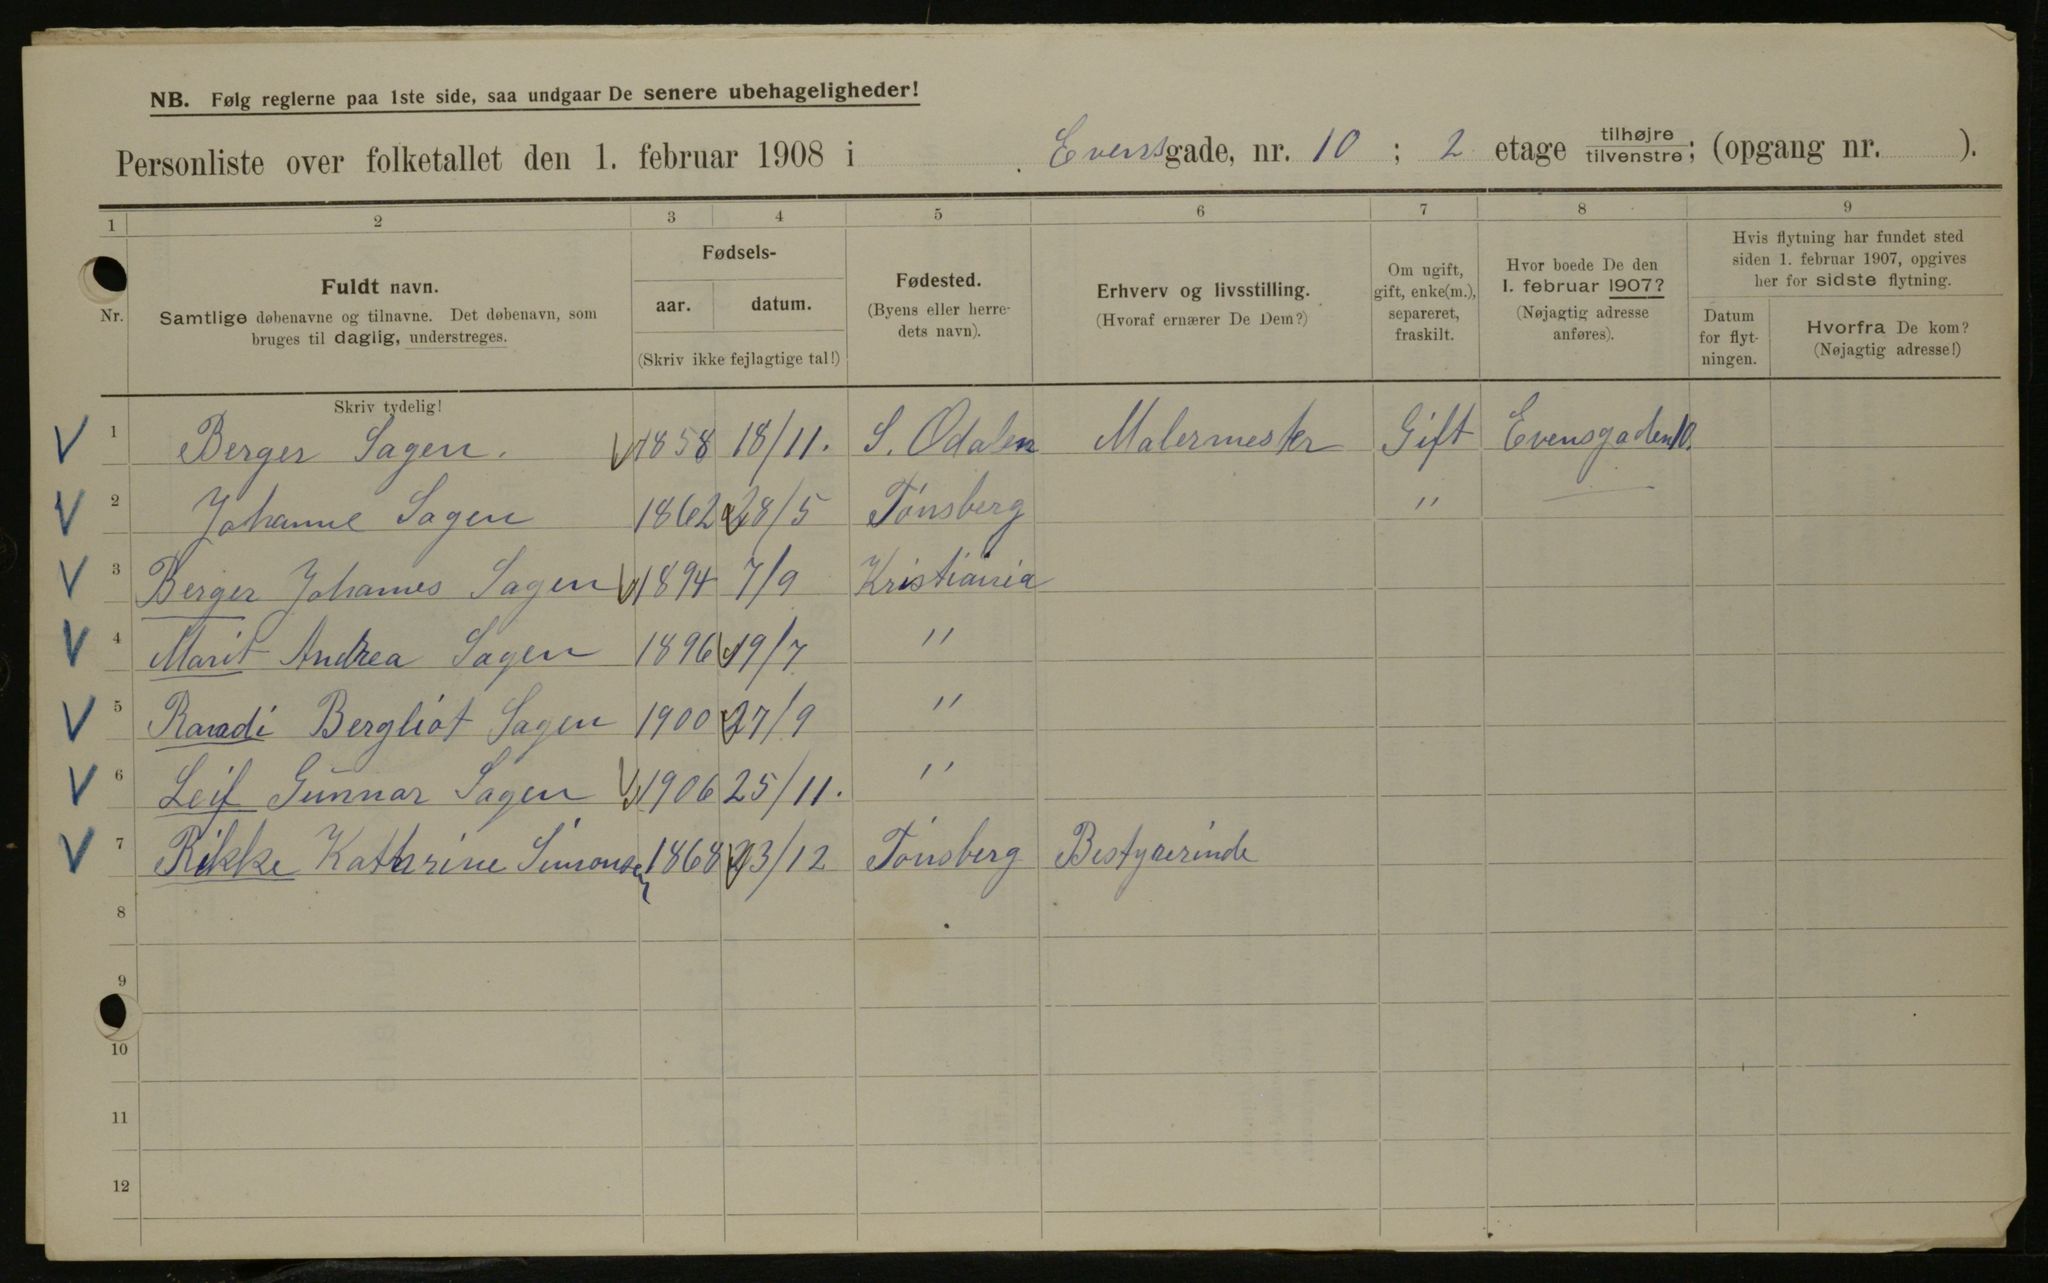 NB. Følg reglerne paa 1ste side, saa undgaar De senere ubehageligheder!
Personliste over folketallet den 1. februar 1908 i Evensgade, nr. 10 ; 2 etage tilhøjre/tilvenstre; (opgang nr. ).
1 2 3 4 5 6 7 8 9
Nr.
Fuldt navn.
Samtlige døbenavne og tilnavne. Det døbenavn, som
bruges til daglig, understreges.
Fødsels-
aar. datum.
(Skriv ikke fejlagtige tal!)
Fødested.
(Byens eller herre-
dets navn).
Erhverv og livsstilling.
(Hvoraf ernærer De Dem?)
Om ugift,
gift, enke(m.),
separeret,
fraskilt.
Hvor boede De den
1. februar 1907?
(Nøjagtig adresse
anføres).
Hvis flytning har fundet sted
siden 1. februar 1907, opgives
her for sidste flytning.
Datum
for flyt-
ningen.
Hvorfra De kom?
(Nøjagtig adresse!)
Skriv tydelig!
1 Berger Sagen. 1858 18/11. S. Odalen Malermester Gift Evensgaden 10.
2 Johanne Sagen 1862 28/5 Tønsberg "
3 Berger Johannes Sagen 1894 7/9 Kristiania
4 Marit Andrea Sagen 1896 19/7 "
5 Randi Bergliot Sagen 1900 27/9 "
6 Leif Gunnar Sagen 1906 25/11. "
7 Rikke Kathrine Simonsen 1868 23/12 Tønsberg Bestyrerinde
8
9
10
11
12